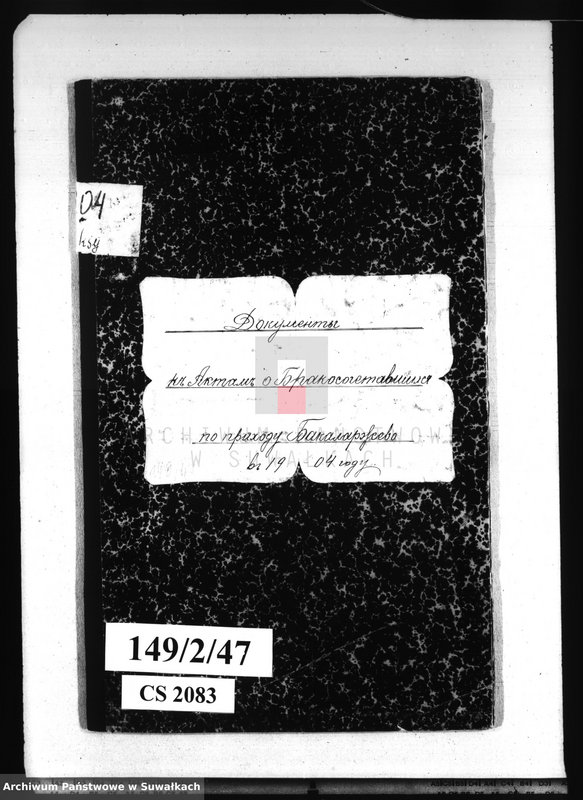 04
Документы
къ Актамъ о Бракосочетавшихся
ARCHIWUM PAŃSTWOWE
по приходу Бакаларжево
W SUWAŁKACH
въ 19 04 году
149/2/47
CS 2083
Archiwum Państwowe w Suwałkach